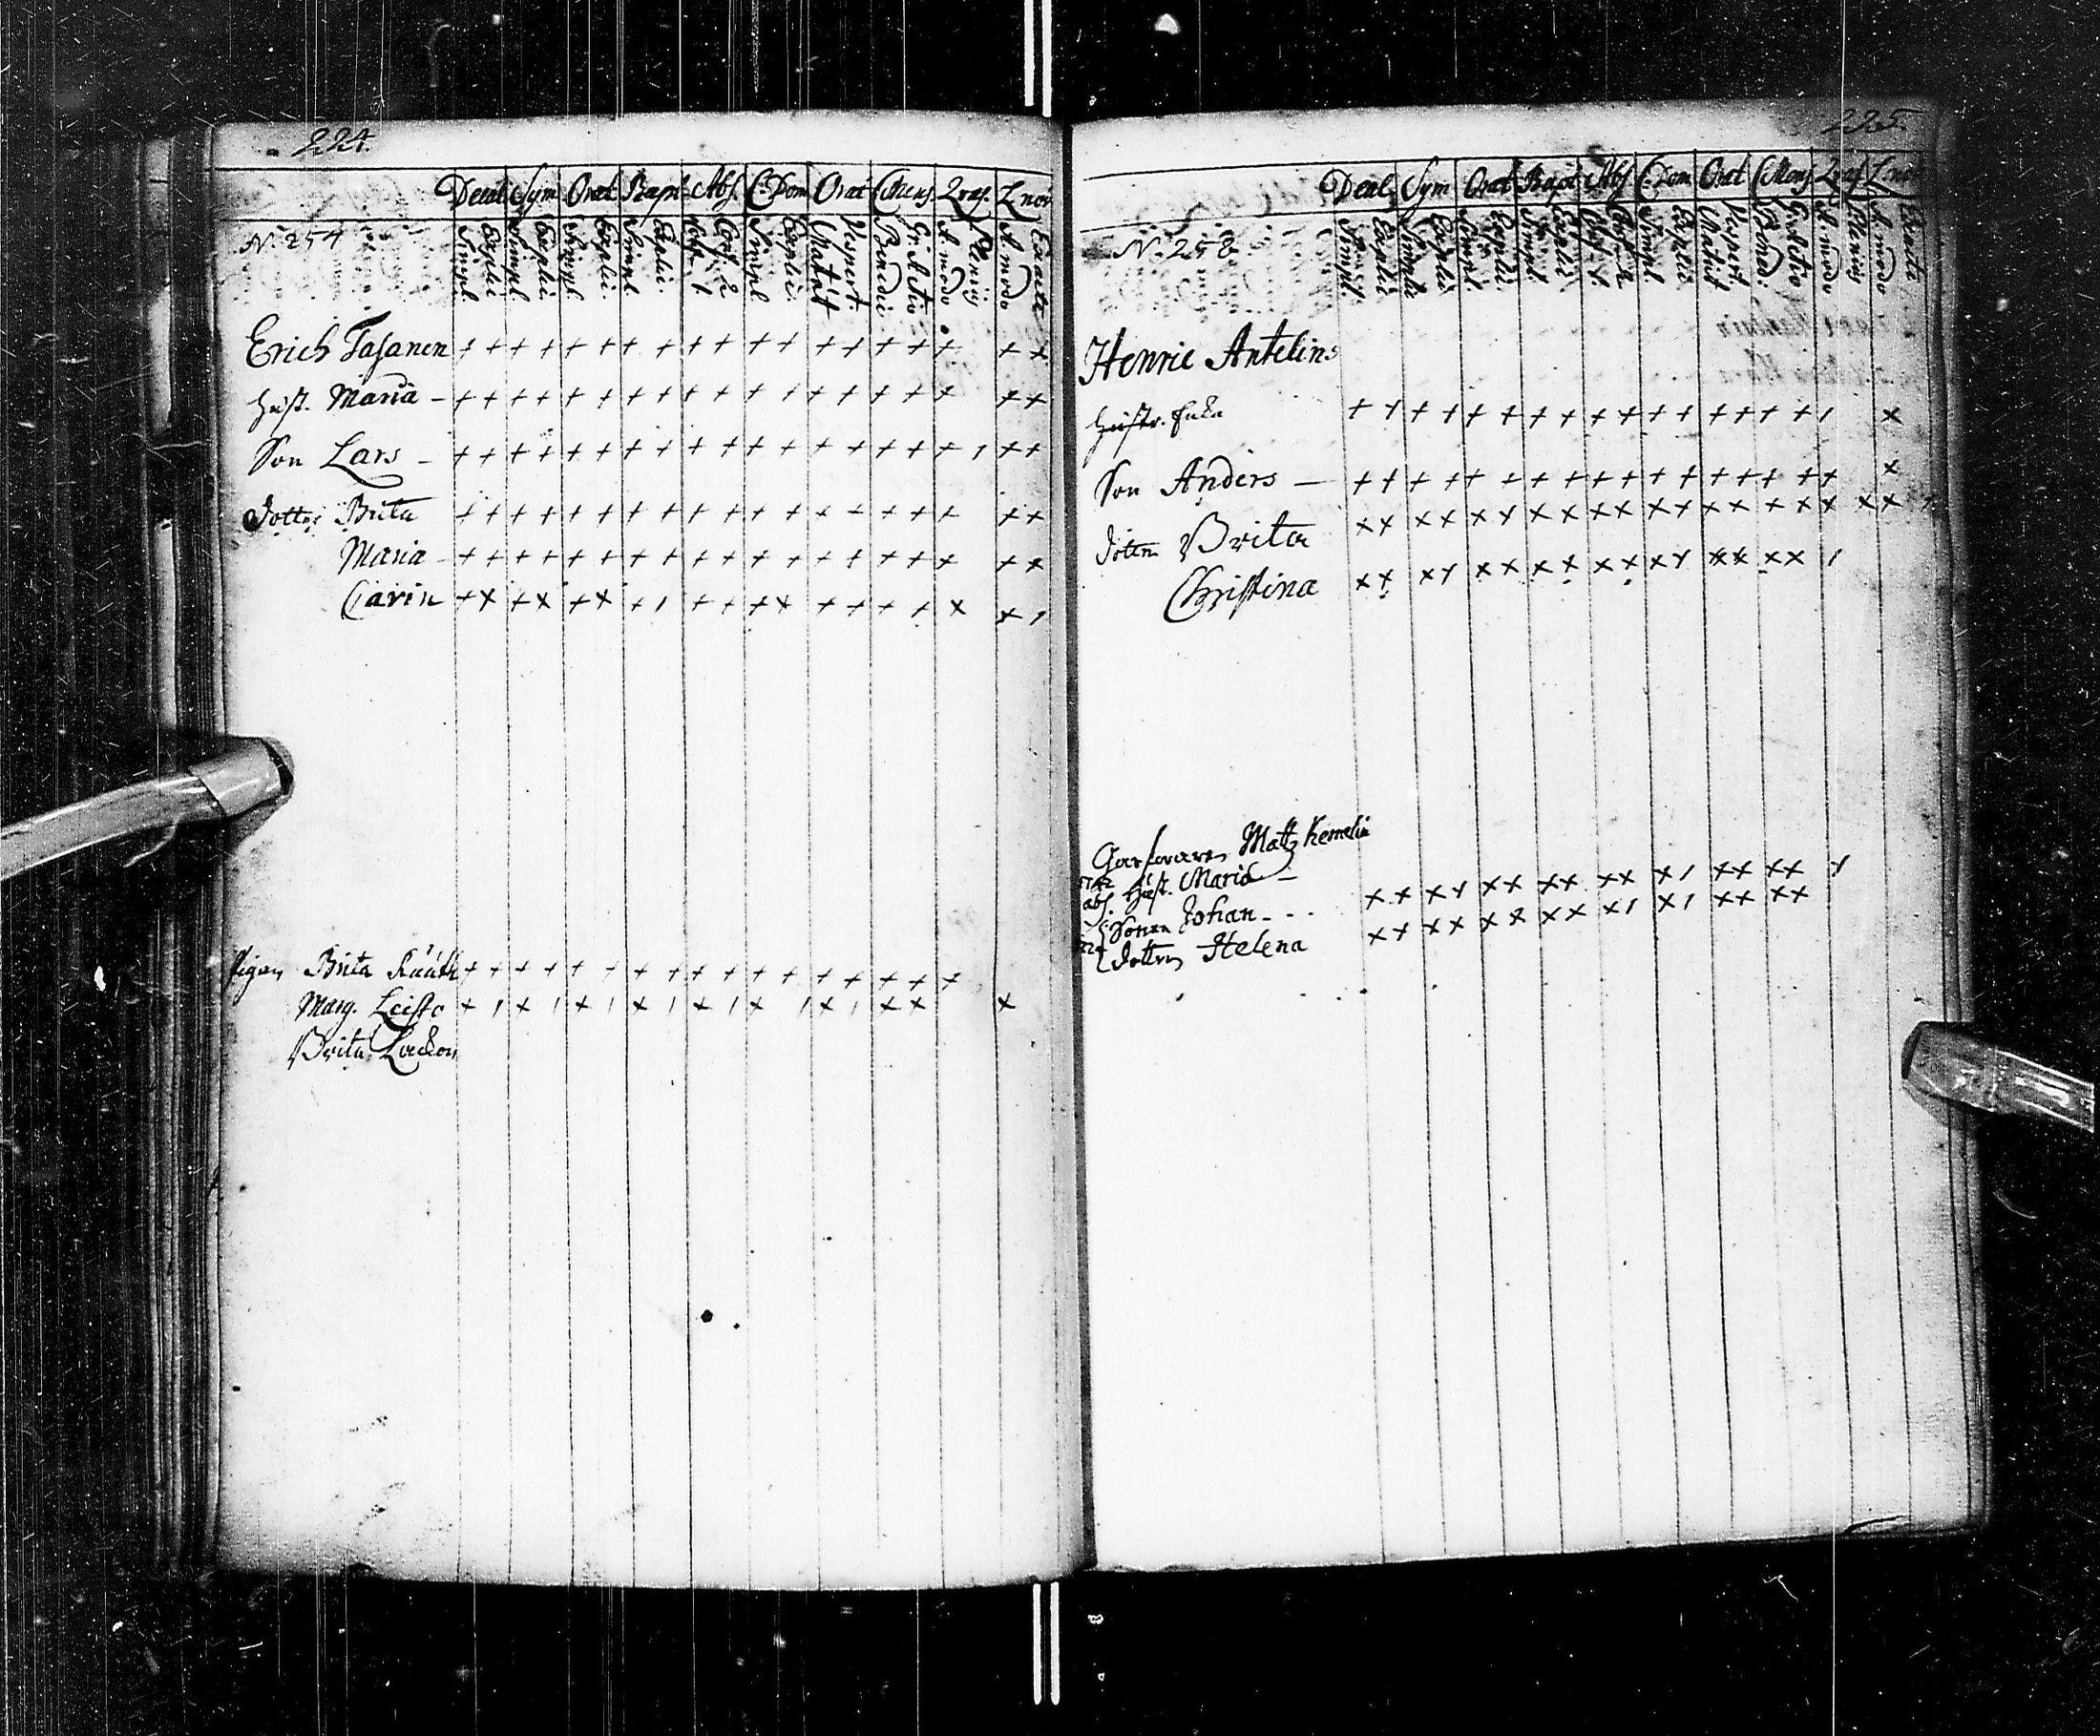 224.
Decal Sym Orat Bapt Abs. C. Dom Orat Mens. Q ras. L nov
N. 254 Simpl. Explic. Simpl. Explic. Simpl. Explic. Simpl. Explic. Conf. 1. Conf. 2 Simpl. Explic. Matut Vespert. Benedic. Gr. Actio A. modo Plenius A. modo Exacte
Erich Tasanen + + + + + + + + + + + + + + + + + + x
Hust. Maria - + + + + + + + + + + + + + + + + + + +
Son Lars - + + + + + + + + + + + + + + + + + 1 + +
Dotter Brita + + + + + + + + + + + + + + + + + + +
Maria - + + + + + + + + + + + + + + + + + + x
Carin + x + x + x + 1 + + + x + + + + x x 1
Pigan Brita + + + + + + + + + + + + + + + + +
Marg. Leisto + 1 x 1 x 1 x 1 x 1 x 1 x 1 x x x
Brita
225.
Decal Sym Orat Bapt Abs C. Dom Orat Mens Q ras L nov
N. 258 Simpl. Explic Simpl. Explic Simpl. Explic Simpl. Explic Abs. 1. Abs. 2 Simpl. Explic Matut Vespert. Bened. Gr. Actio A. modo Plenius A. modo Exacte
Henric Antelius
Hustr. + + + + + + + + + + + + + + + + 1 x
Son Anders - + + + + + + + + + + + + + + + + + x
Dottren Brita x x x x x x x x x x x x x x x x x x x 1
Christina x x x x x x x x x x x x x x x x 1
Garfwaren Matz Kemelin
1742
abs. Hust. Maria - x x x x x x x x x x x 1 x x x x x
Sonen Johan - - - x x x x x x x x x 1 x 1 x x x x
Dottren Helena